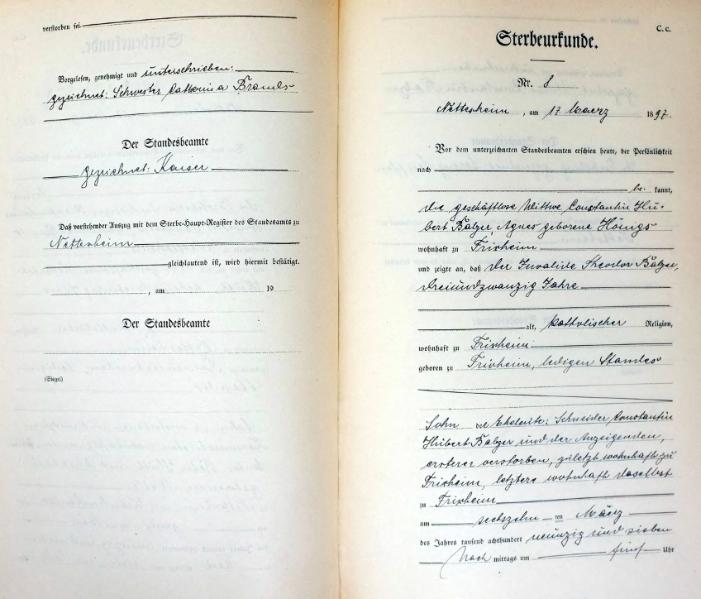 verstorben sei
Vorgelesen, genehmigt und unterschrieben:
gezeichnet: Schwester Katharina Brands
Der Standesbeamte
gezeichnet: Kaiser
Daß vorstehender Auszug mit dem Sterbe-Haupt-Register des Standesamts zu
Nettersheim
gleichlautend ist, wird hiermit bestätigt.
, am 19
Der Standesbeamte
(Siegel)
C. c.
Sterbeurkunde.
Nr. 8
am 17 Maerz 1897.
Vor dem unterzeichneten Standesbeamten erschien heute, der Persönlichkeit
nach
be kannt,
die geschäftlose Wittwe Constantin Hu-
bert Balzer Agnes geborene Hönigs
wohnhaft zu Frixheim
und zeigte an, daß der Invalide Theodor Balzer,
dreiundzwanzig Jahre
alt, katholischer Religion,
wohnhaft zu Frixheim
geboren zu Frixheim, ledigen Standes
Sohn der Eheleute: Schneider Constantin
Hubert Balzer und der Anzeigenden,
ersterer verstorben, zuletzt wohnhaft zu
Frixheim, letztere wohnhaft daselbst
zu Frixheim
am sechszehn ten März
des Jahres tausend achthundert neunzig und sieben
Nach mittags um fünf Uhr